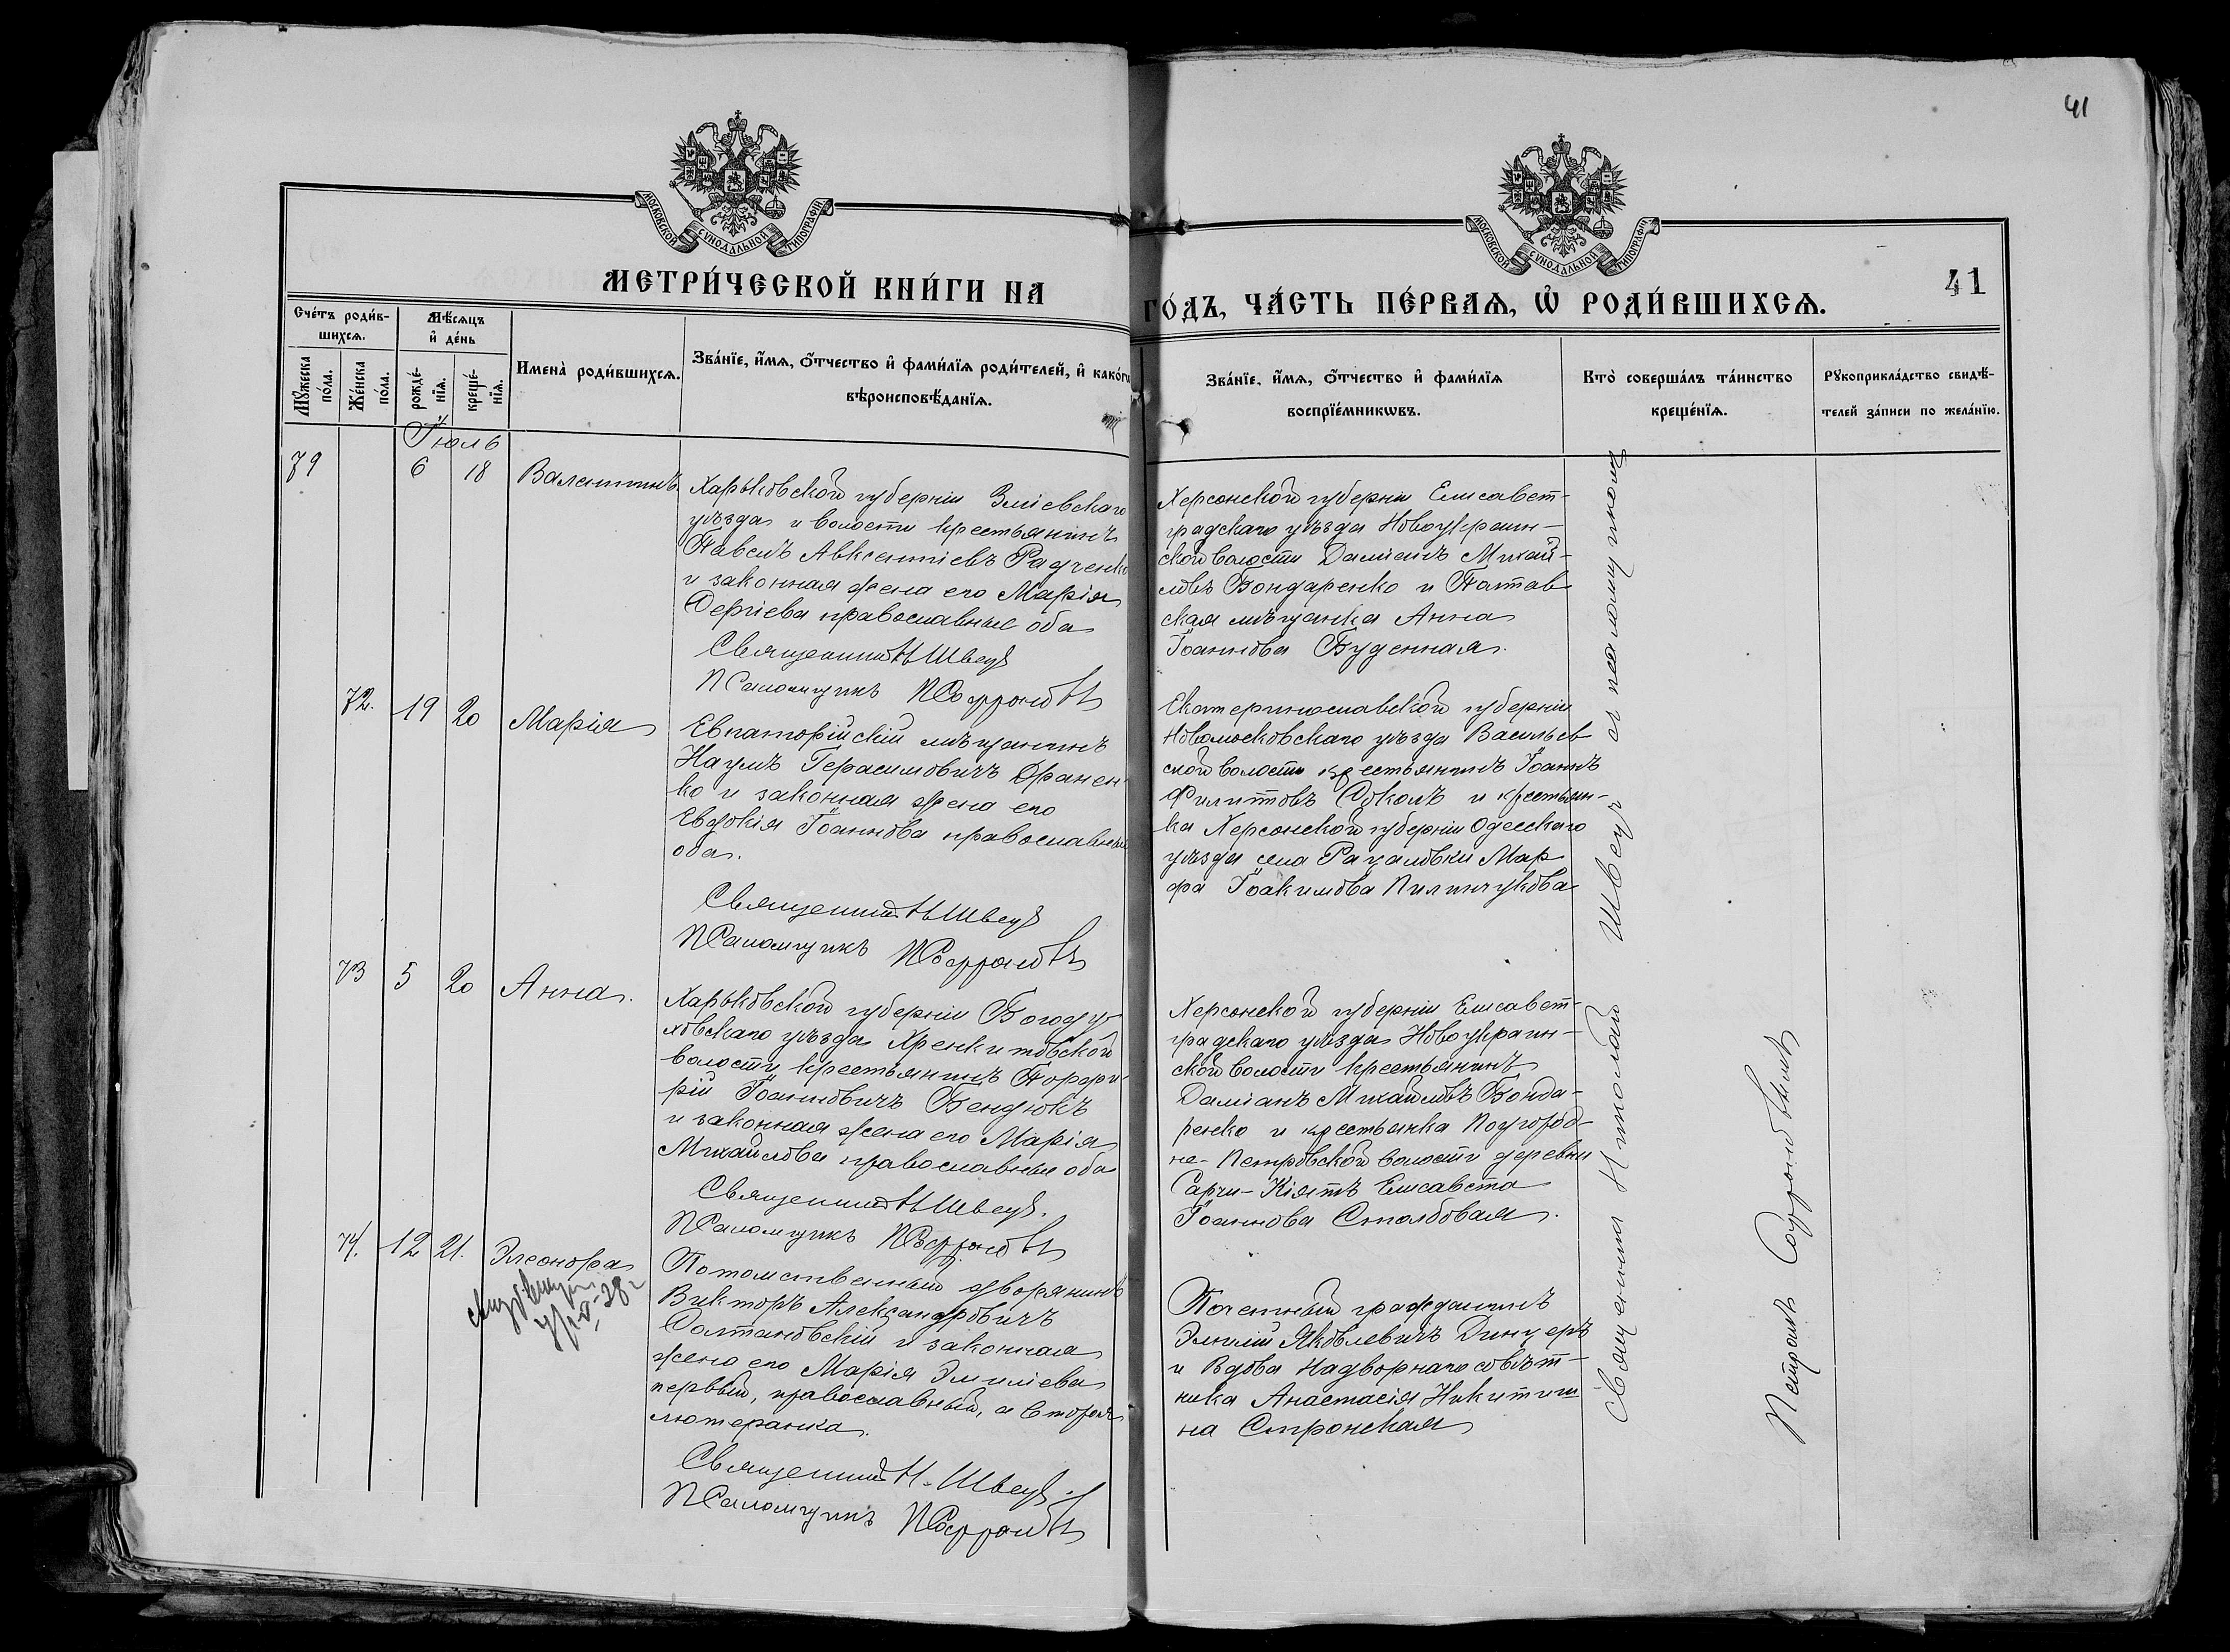 41
МОСКОВСКОЙ СѴНОДАЛЬНОЙ ТИПОГРАФІИ
МОСКОВСКОЙ СѴНОДАЛЬНОЙ ТИПОГРАФІИ
МЕТРИ́ЧЕСКОЙ КНИ́ГИ НА
ГО́ДЪ, ЧА́СТЬ ПЕ́РВАѦ, Ѡ҆ РОДИ́ВШИХСѦ.
41
Сче́тъ роди́в-
шихсѧ.
Мѣ́сѧцъ
и҆ де́нь
Мꙋ́жеска
по́ла.
Же́нска
по́ла.
рожде́-
нїѧ.
креще́-
нїѧ.
Имена̀ роди́вшихсѧ.
Зва́нїе, и҆́мѧ, ѻ҆́тчество и҆ фами́лїѧ роди́телей, и҆ како́гѡ
вѣроисповѣ́данїѧ.
Зва́нїе, и҆́мѧ, ѻ҆́тчество и҆ фами́лїѧ
воспрїе́мникѡвъ.
Кто̀ соверша́лъ та́инство
креще́нїѧ.
Рꙋкоприкла́дство свидѣ́-
телей за́писи по жела́нїю.
Іюль
79
6
18
Валентинъ
Харьковской губерніи Зміевскаго
уѣзда и волости крестьянинъ
Павелъ Авксентіевъ Радченко
и законная жена его Марія
Сергіева православные оба
Священникъ Н Швецъ
Псаломщикъ П Софроновъ
Херсонской губерніи Елисавет-
градскаго уѣзда Новоукраин-
ской волости Даміанъ Михай-
ловъ Бондаренко и Полтав
ская мѣщанка Анна
Іоаннова Буденная.
72.
19
20
Марія
Евпаторійскій мѣщанинъ
Наумъ Герасимовичъ Дранен-
ко и законная жена его
Евдокія Іоаннова православные
оба.
Священникъ Н Швецъ
Псаломщикъ П Софроновъ
Екатеринославской губерніи
Новомосковскаго уѣзда Васильев
ской волости крестьянинъ Іоаннъ
Филипповъ Соколъ и крестьян-
ка Херсонской губерніи Одесскаго
уѣзда села Рацаловки Мар
фа Іоакимова Пилипчукова
73
5
20
Анна.
Харьковской губерніи Богоду-
ховскаго уѣзда
волости крестьянинъ Порфи-
рій Іоанновичъ Бендюкъ
и законная жена его Марія
Михайлова православные оба
Священникъ Н Швецъ.
Псаломщикъ П Софроновъ
Херсонской губерніи Елисавет-
градскаго уѣзда Новоукраин-
ской волости крестьянинъ
Даміанъ Михайловъ Бонда-
ренко и крестьянка Подгород-
не-Петровской волости деревни
Сарчи-Кіятъ Елисавета
Іоаннова Столбовая.
74.
12
21.
Элеонора
Потомственный дворянинъ
Викторъ Александровичъ
Солтановскій и законная
жена его Марія Эмиліева
первый, православный, а вторая
лютеранка.
Священникъ Н. Швецъ.
Псаломщикъ П Софроновъ
Почетный гражданинъ
Эмилій Яковлевичъ Динцеръ
и Вдова Надворнаго совѣт-
ника Анастасія Никитиш
на Стронская
Священникъ Николай Швецъ съ псаломщикомъ
Петромъ Софроновымъ